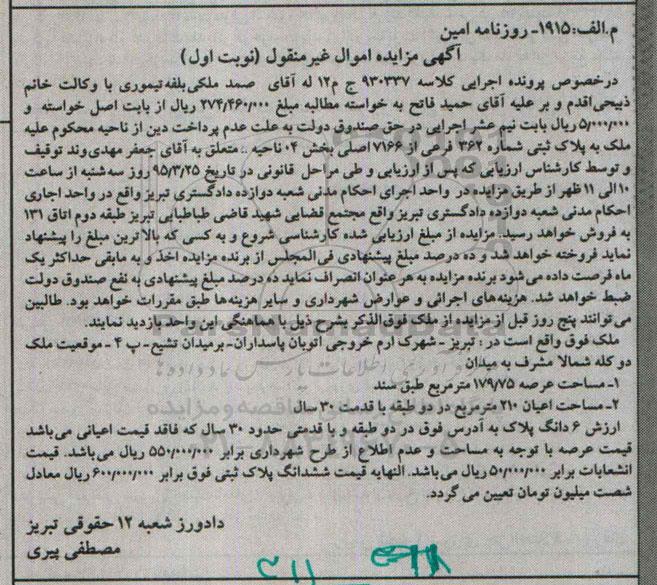 م.الف:۱۹۱۵- روزنامه امین
آگهی مزایده اموال غیرمنقول (نوبت اول)
درخصوص پرونده اجرایی کلاسه ۹۳۰۳۳۷ ج م۱۲ له آقای صمد ملکی‌بلفه‌تیموری با وکالت خانم
ذبیحی‌اقدم و بر علیه آقای حمید فاتح به خواسته مطالبه مبلغ ۲۷۴٫۴۶۰٫۰۰۰ ریال از بابت اصل خواسته و
۵٫۰۰۰٫۰۰۰ ریال بابت نیم عشر اجرایی در حق صندوق دولت به علت عدم پرداخت دین از ناحیه محکوم علیه
ملک به پلاک ثبتی شماره ۳۶۲ فرعی از ۷۱۶۶ اصلی بخش ۰۴ ناحیه .. متعلق به آقای جعفر مهدی‌وند توقیف
و توسط کارشناس ارزیابی که پس از ارزیابی و طی مراحل قانونی در تاریخ ۹۵/۳/۲۵ روز سه‌شنبه از ساعت
۱۰ الی ۱۱ ظهر از طریق مزایده در واحد اجرای احکام مدنی شعبه دوازده دادگستری تبریز واقع در واحد اجاری
احکام مدنی شعبه دوازده دادگستری تبریز واقع مجتمع قضایی شهید قاضی طباطبایی تبریز طبقه دوم اتاق ۱۳۱
به فروش خواهد رسید. مزایده از مبلغ ارزیابی شده کارشناسی شروع و به کسی که بالاترین مبلغ را پیشنهاد
نماید فروخته خواهد شد و ده درصد مبلغ پیشنهادی فی‌المجلس از برنده مزایده اخذ و به مابقی حداکثر یک
ماه فرصت داده می‌شود برنده مزایده به هر عنوان انصراف نماید ده درصد مبلغ پیشنهادی به نفع صندوق دولت
ضبط خواهد شد. هزینه‌های اجرائی و عوارض شهرداری و سایر هزینه‌ها طبق مقررات خواهد بود. طالبین
می‌توانند پنج روز قبل از مزایده از ملک فوق‌الذکر بشرح ذیل با هماهنگی این واحد بازدید نمایند.
ملک فوق واقع است در: تبریز - شهرک ارم خروجی اتوبان پاسداران- برمیدان تشیع- پ ۴ - موقعیت ملک
دو کله شمالا مشرف به میدان
۱- مساحت عرصه ۱۷۹/۷۵ مترمربع طبق سند
۲- مساحت اعیان ۲۱۰ مترمربع در دو طبقه با قدمت ۳۰ سال
ارزش ۶ دانگ پلاک به آدرس فوق در دو طبقه و با قدمتی حدود ۳۰ سال که فاقد قیمت اعیانی می‌باشد
قیمت عرصه با توجه به مساحت و عدم اطلاع از طرح شهرداری برابر ۵۵۰/۰۰۰/۰۰۰ ریال می‌باشد. قیمت
انشعابات برابر ۵۰/۰۰۰/۰۰۰ ریال می‌باشد. النهایه قیمت ششدانگ پلاک ثبتی فوق برابر ۶۰۰/۰۰۰/۰۰۰ ریال معادل
شصت میلیون تومان تعیین می گردد.
دادورز شعبه ۱۲ حقوقی تبریز
مصطفی پیری